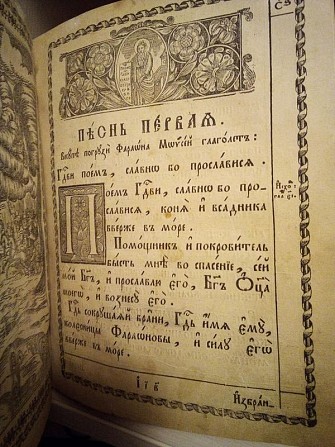 ПѢСНЬ ПЕ́РВАѦ.
погрꙋзи́ Фараѡ́на Мѡѷсе́й глаго́летъ:
Гдⷭ҇ви пое́мъ, сла́внѡ во просла́висѧ.
Пое́мъ Гдⷭ҇ви, сла́внѡ во про-
сла́висѧ, конѧ̀ и҆ вса́дника
вве́рже въ мо́ре.
Помо́щникъ и҆ покрови́тель
бы́сть мнѣ̀ во спасе́нїе, се́й
мо́й Бг҃ъ, и҆ просла́влю є҆го̀, Бг҃ъ Ѻ҆ц҃а̀
моегѡ̀, и҆ вознесꙋ̀ є҆го̀.
Гдⷭ҇ь сокрꙋша́ѧй бра̑ни, Гдⷭ҇ь и҆́мѧ є҆мꙋ̀,
колесни́цы Фараѡ́новы, и҆ си́лꙋ є҆гѡ̀
вве́рже въ мо́ре.
И҆збра́н-